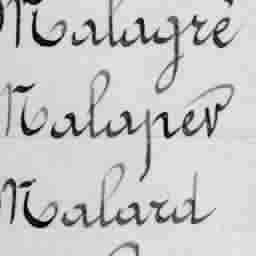 Malagré
Malaper
Malard